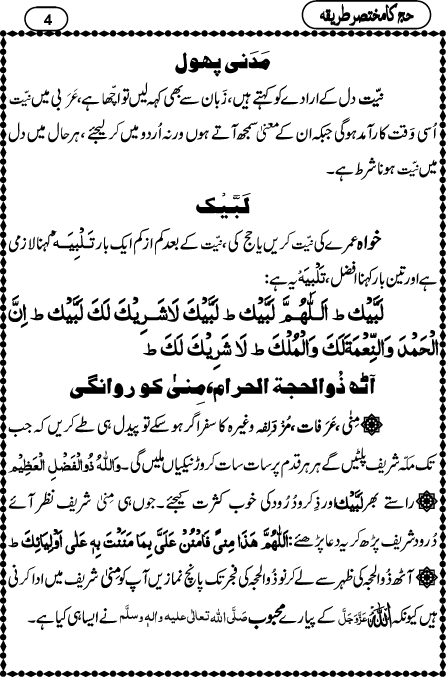 حج کا مختصر طریقہ
4
مَدَنی پھول
نیّت دل کے ارادے کو کہتے ہیں، زَبان سے بھی کہہ لیں تو اچھا ہے، عَرَبی میں نیّت
اُسی وَقت کارآمد ہوگی جبکہ ان کے معنیٰ سمجھ آتے ہوں ورنہ اُردو میں کر لیجئے، ہر حال میں دل
میں نیّت ہونا شرط ہے۔
لَبَّیْک
خواہ عمرے کی نیّت کریں یا حج کی، نیّت کے بعد کم از کم ایک بار تَلْبِیَہ کہنا لازمی
ہے اور تین بار کہنا افضل، تَلْبِیَہ یہ ہے:
لَبَّیْكَ ط اَللّٰھُمَّ لَبَّیْكَ ط لَبَّیْكَ لَاشَرِیْكَ لَكَ لَبَّیْكَ ط اِنَّ
الْحَمْدَ وَالنِّعْمَةَ لَكَ وَالْمُلْكَ ط لَا شَرِیْكَ لَكَ ط
آٹھ ذُوالحجة الحرام، مِنٰی کو روانگی
مِنٰی، عَرَفات، مُزْدَلِفہ وغیرہ کا سفر اگر ہو سکے تو پیدل ہی طے کریں کہ جب
تک مکّہ شریف پلٹیں گے ہر ہر قدم پر سات سات کروڑ نیکیاں ملیں گی۔ وَاللّٰہُ ذُوالْفَضْلِ الْعَظِیْمِ
راستے بھر لَبَّیْك اور ذِکر و دُرود کی خوب کثرت کیجئے۔ جوں ہی مِنٰی شریف نظر آئے
دُرود شریف پڑھ کر یہ دعا پڑھئے: اَللّٰھُمَّ ھٰذَا مِنًی فَامْنُنْ عَلَیَّ بِمَا مَنَنْتَ بِہٖ عَلٰی اَوْلِیَائِكَ ط
آٹھ ذُوالحجہ کی ظہر سے لے کر نو ذُوالحجہ کی فجر تک پانچ نمازیں آپ کو مِنٰی شریف میں ادا کرنی
ہیں کیونکہ اللّٰہ عَزَّوَجَلَّ کے پیارے محبوب صَلَّی اللہ تعالٰی علیہ واٰلہٖ وسلَّم نے ایسا ہی کیا ہے۔